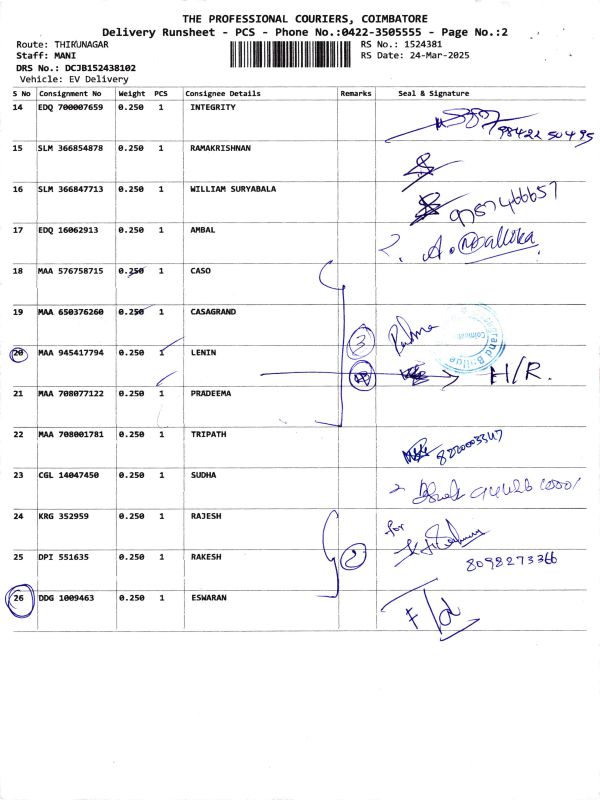 THE PROFESSIONAL COURIERS, COIMBATORE
Delivery Runsheet - PCS - Phone No.:0422-3505555 - Page No.:2
Route: THIRUNAGAR
RS No.: 1524381
Staff: MANI
RS Date: 24-Mar-2025
DRS No.: DCJB152438102
Vehicle: EV Delivery
S No Consignment No Weight PCS Consignee Details Remarks Seal & Signature
14 EDQ 700007659 0.250 1 INTEGRITY
98422 50495
15 SLM 366854878 0.250 1 RAMAKRISHNAN
16 SLM 366847713 0.250 1 WILLIAM SURYABALA
9787466657
17 EDQ 16062913 0.250 1 AMBAL
18 MAA 576758715 0.250 1 CASO
19 MAA 650376260 0.250 1 CASAGRAND
3
20 MAA 945417794 0.250 1 LENIN
H/R.
21 MAA 708077122 0.250 1 PRADEEMA
22 MAA 708001781 0.250 1 TRIPATH
8220003347
23 CGL 14047450 0.250 1 SUDHA
24 KRG 352959 0.250 1 RAJESH
for
25 DPI 551635 0.250 1 RAKESH
2
8098273366
26 DDG 1009463 0.250 1 ESWARAN